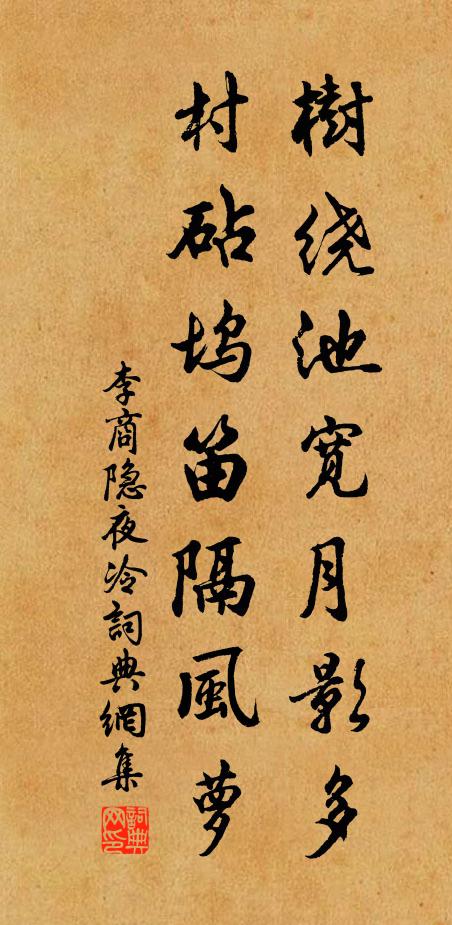 樹绕池寬月影多
村砧坞笛隔風萝
李商隐夜冷詞典網集
詞典网印